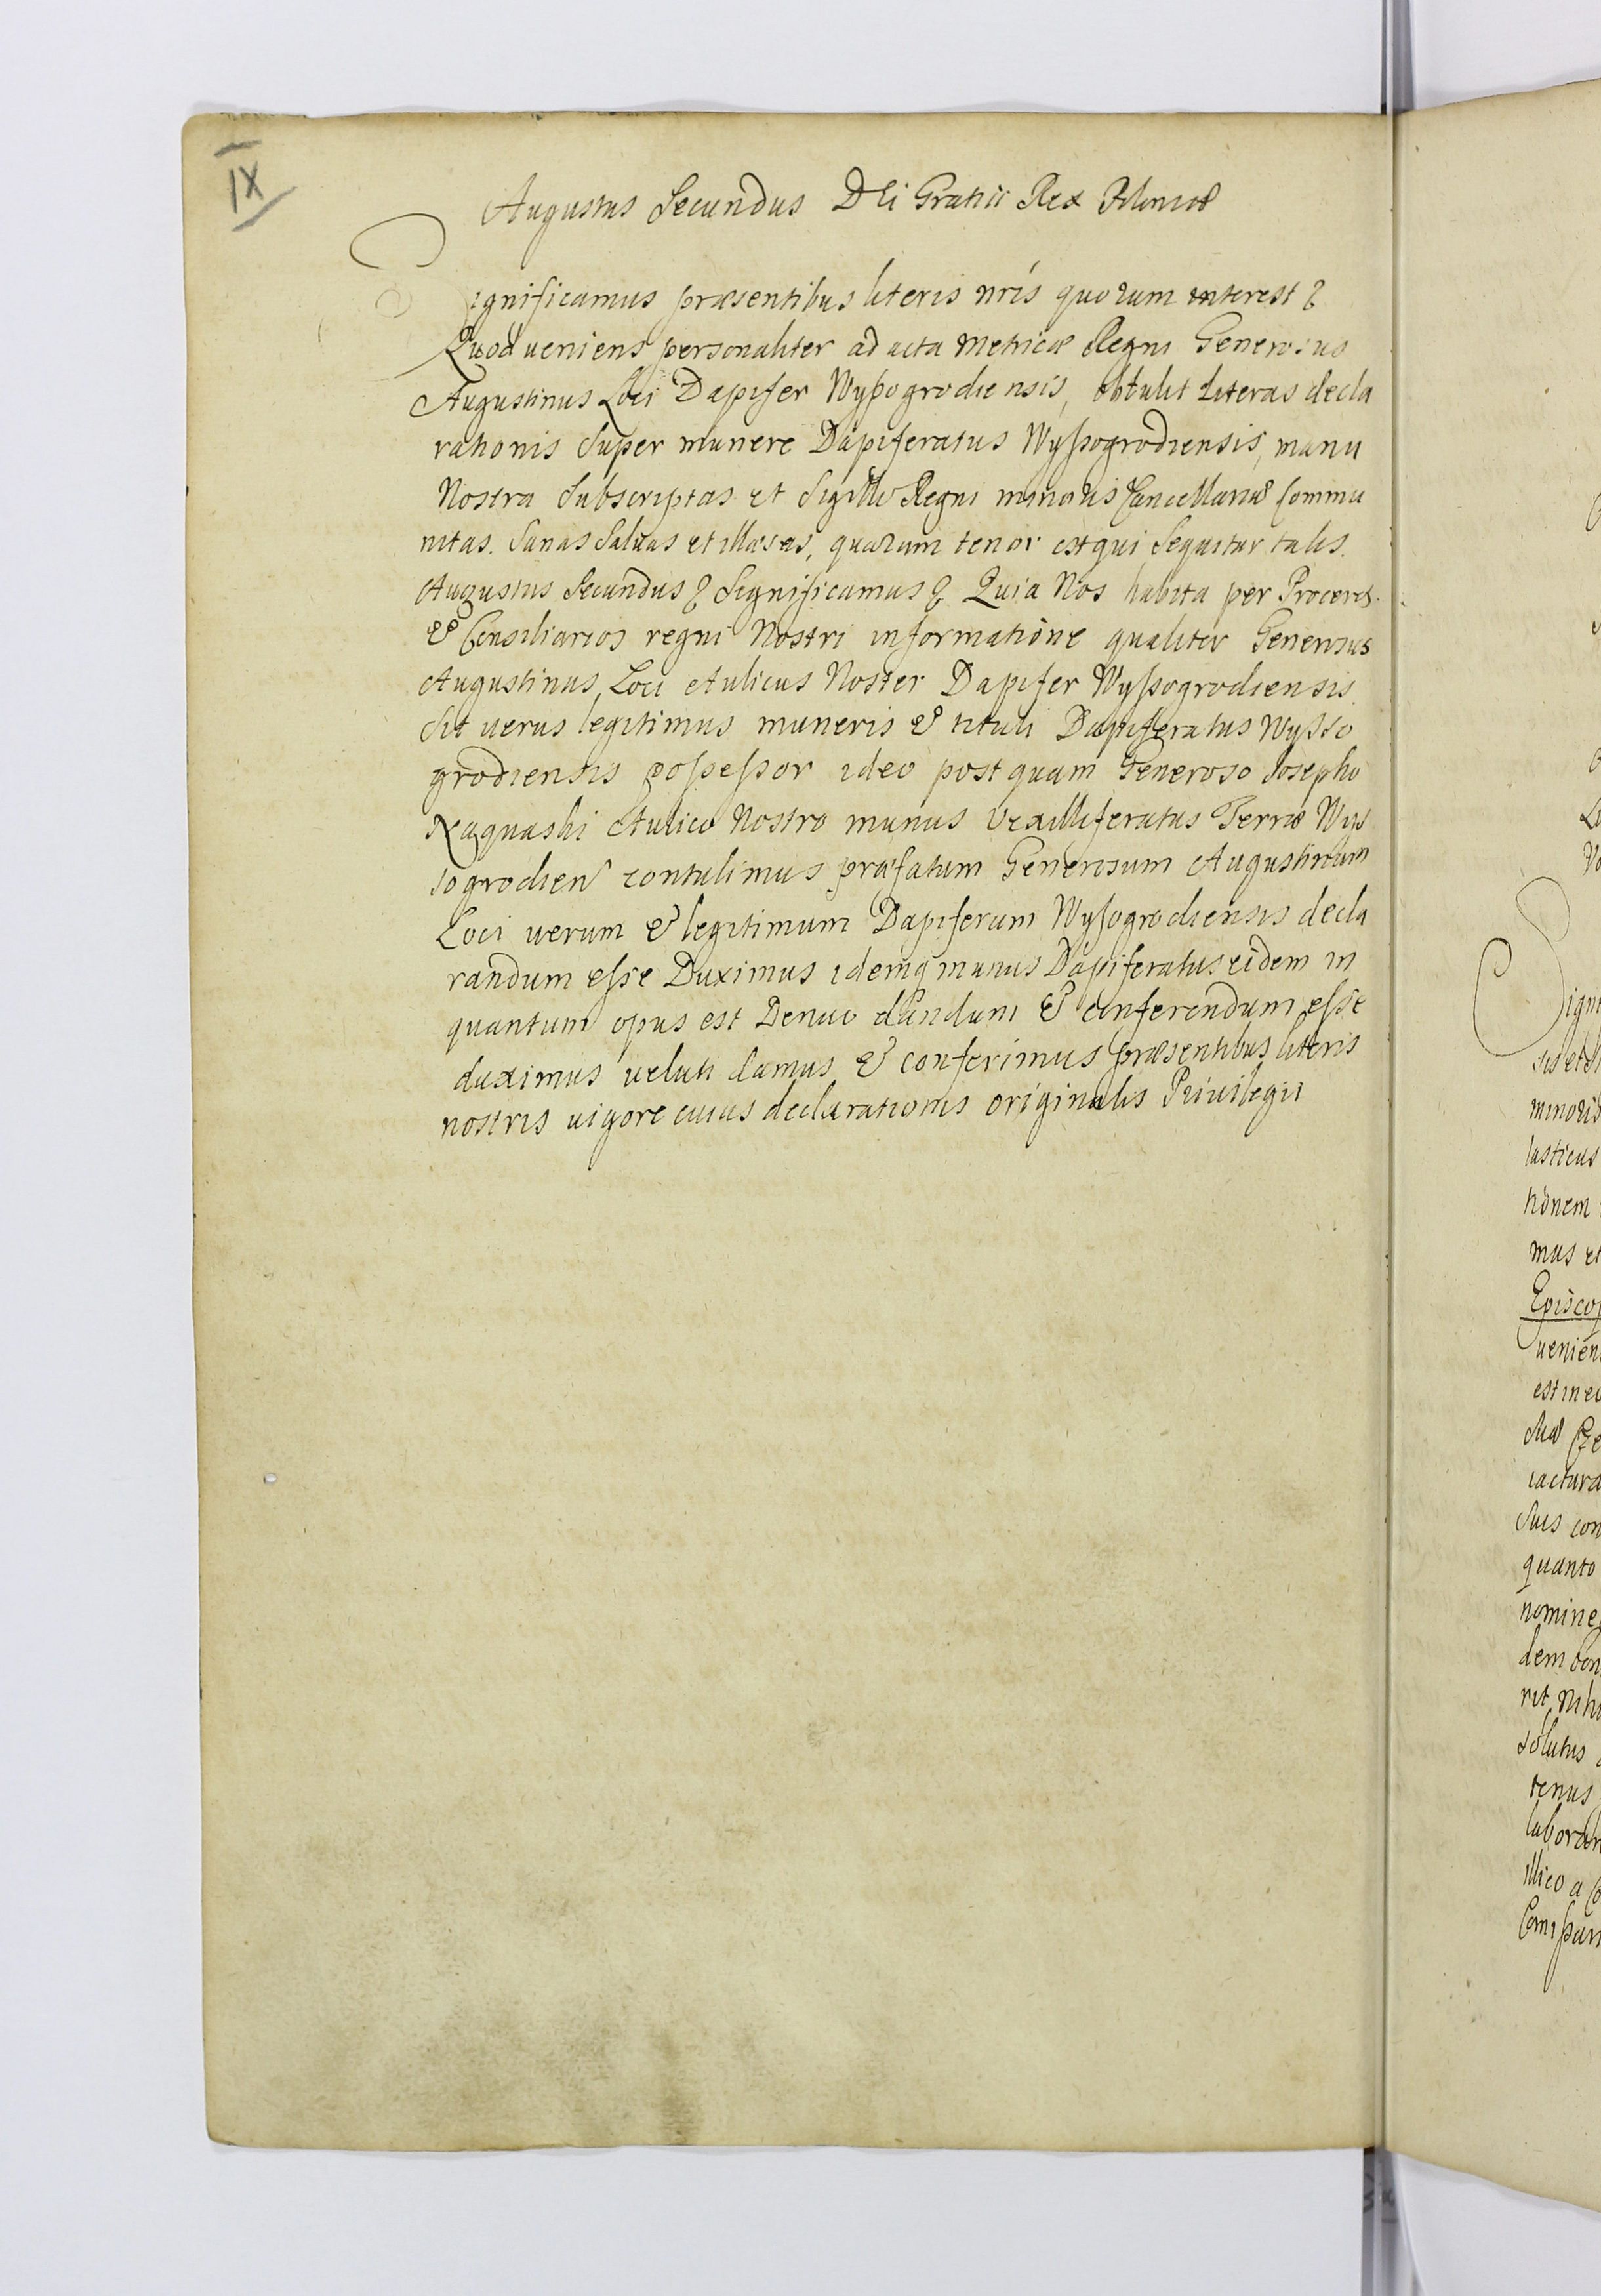 IX
Augustus Secundus Dei Gratia Rex Poloniæ
Significamus præsentibus literis nris quorum interest &
Quod ueniens personaliter ad acta Metricæ Regni Generosus
Augustinus Loci Dapifer Wyssogrodiensis, obtulit Literas decla
rationis Super munere Dapiferatus Wyssogrodiensis, manu
Nostra Subscriptas et Sigillo Regni minoris Cancellariæ Commu
nitas. Sanas Saluas et illæsas, quarum tenor est qui Sequitur talis.
Augustus Secundus & Significamus & Quia Nos habita per Proceres
& Consiliarios regni Nostri informatione qualiter Generosus
Augustinus Loci Aulicus Noster Dapifer Wyssogrodiensis
Sit uerus legitimus muneris & tituli Dapiferatus Wysso
grodiensis possessor ideo post quam Generoso Josepho
Aulico Nostro munus Vexilliferatus Terræ Wys
sogrodien contulimus præfatum Generosum Augustinum
Loci uerum & legitimum Dapiferum Wysogrodiensis decla
randum esse Duximus idemq munus Dapiferatus eidem in
quantum opus est Denuo dandum & conferendum esse
duximus ueluti damus & conferimus præsentibus literis
nostris uigore cuius declarationis originalis Priuilegii
minoris
lasticus
tionem
mus et
Episcop
uenien
est in eo
iactura
Suis con
quanto
nomine
dem bon
rit Nihi
solutus
tenus
laboran
illico a